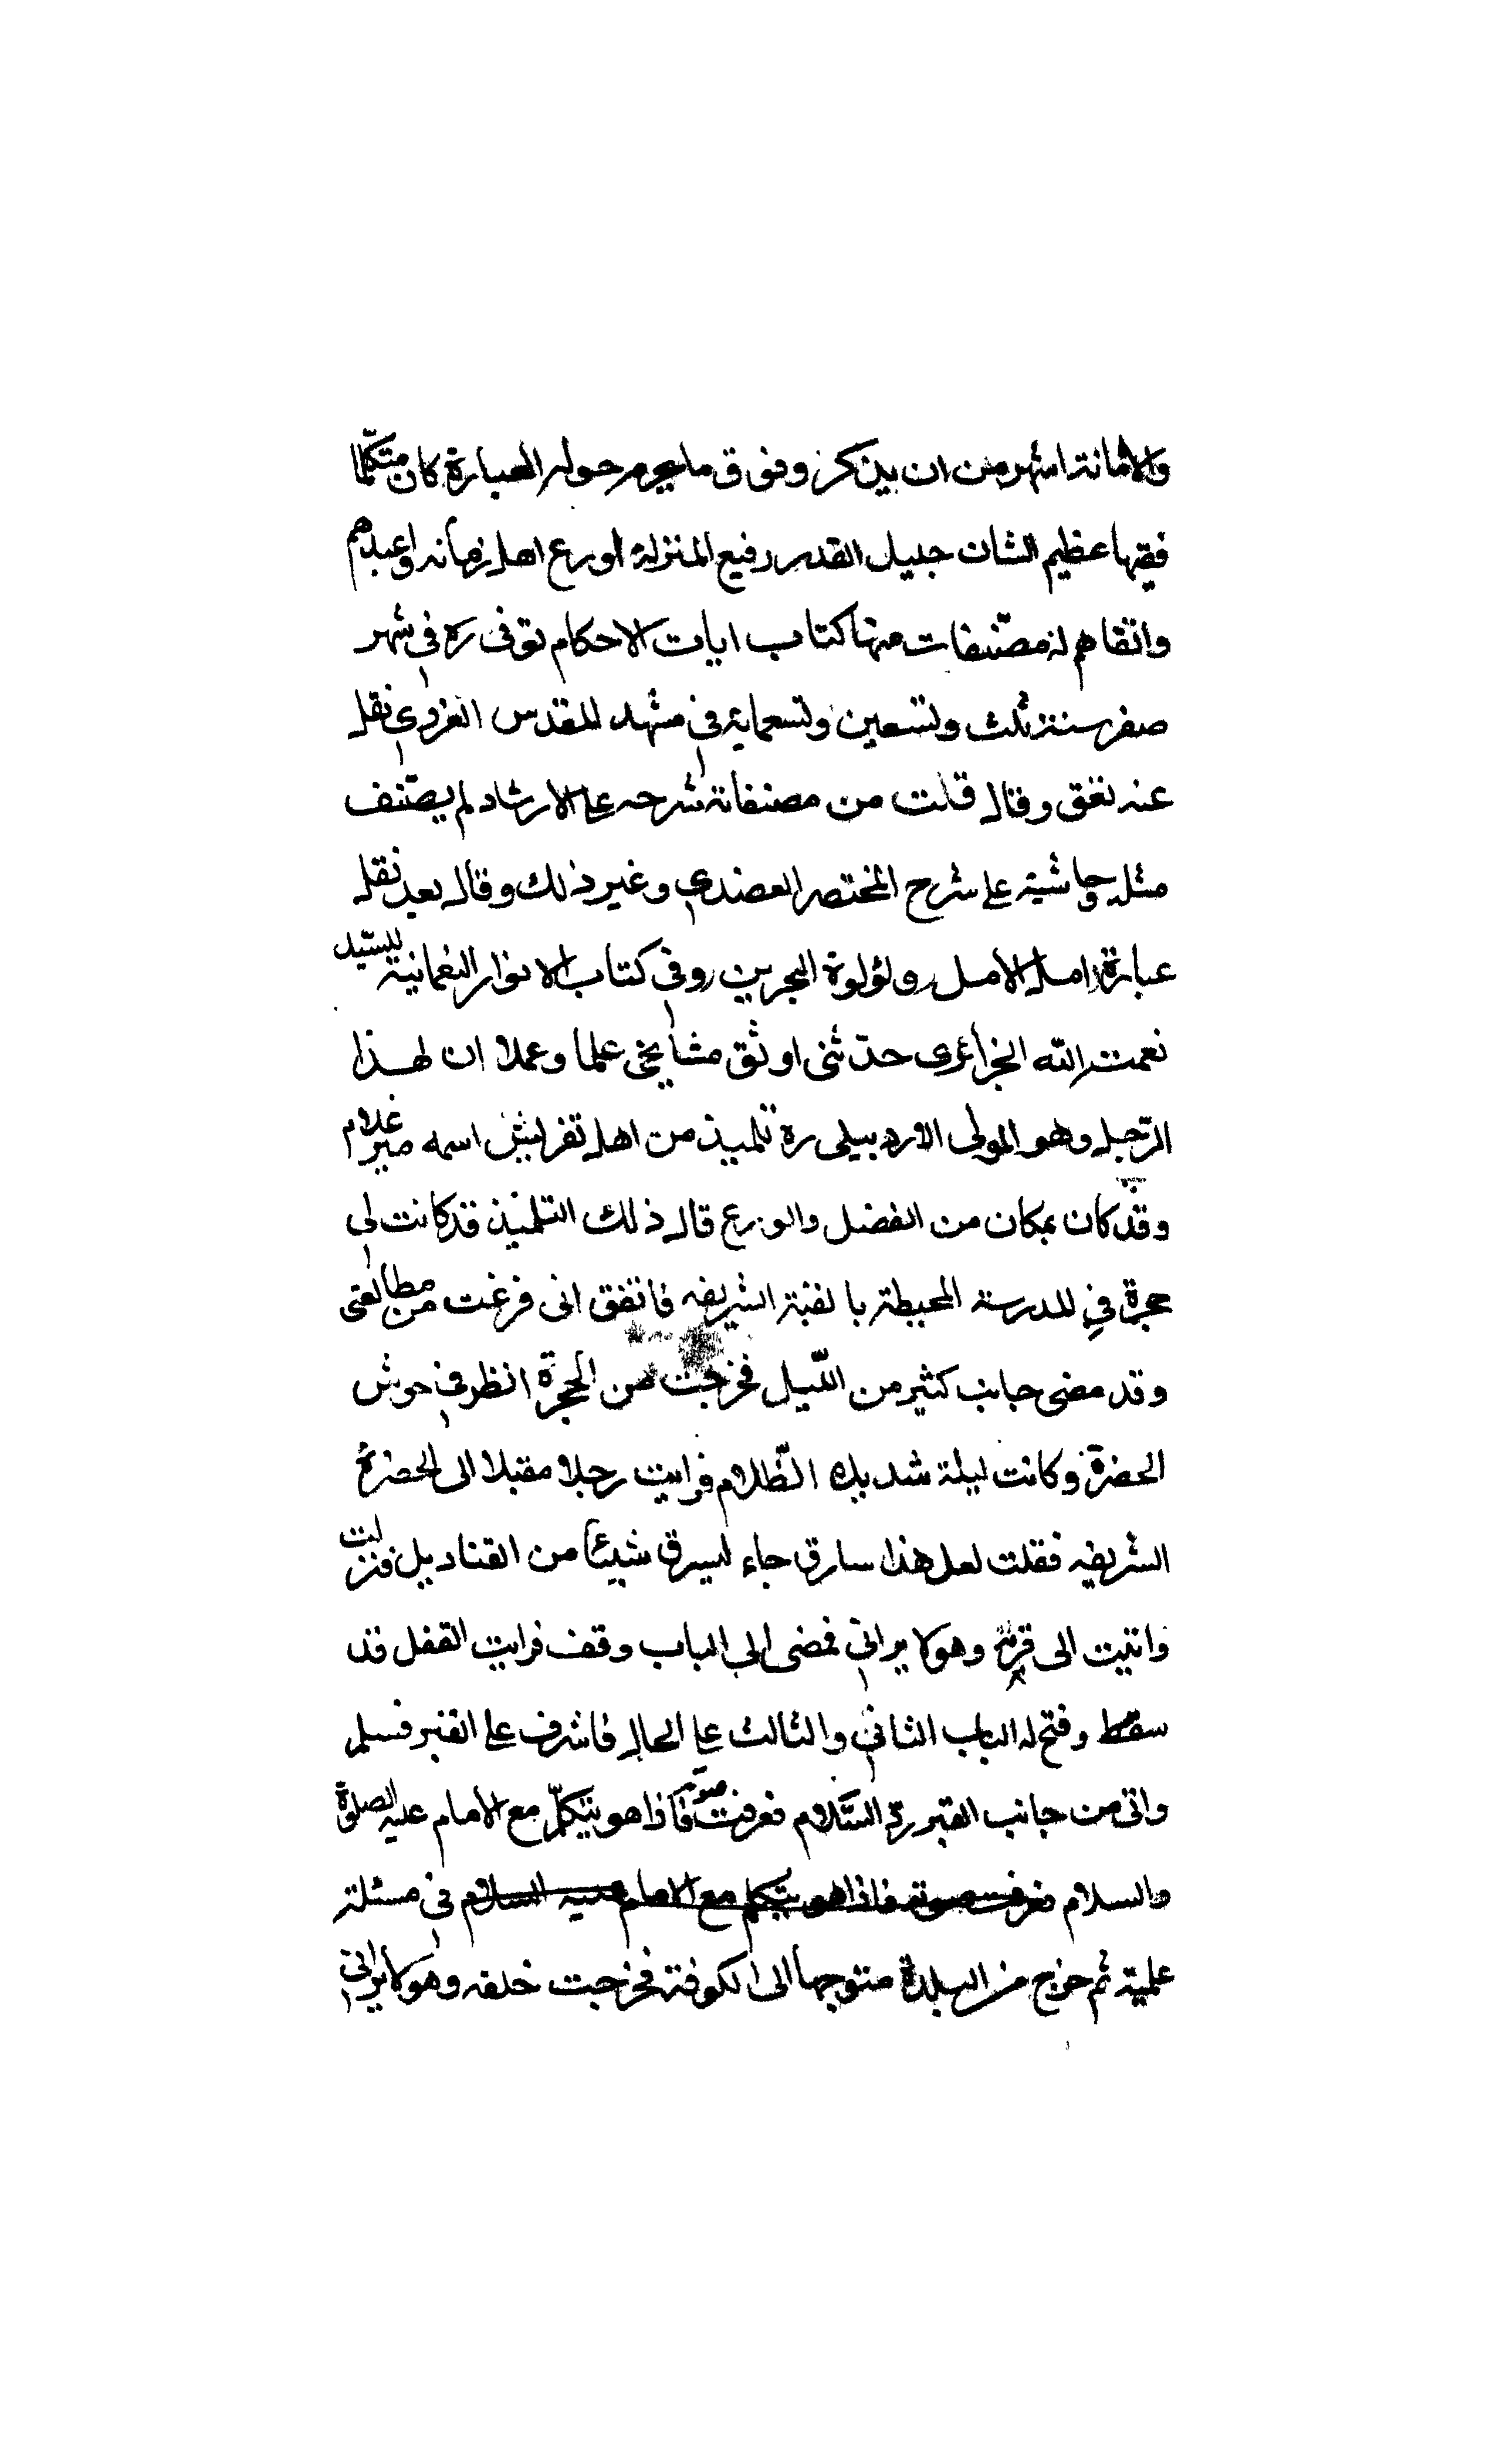 والامانة اشهر من ان يذكر وفوق ما يحوم حوله العبارة كان متكلما
فقيها عظيم الشان جليل القدر رفيع المنزلة اورع اهل زمانه واعبدهم
واتقاهم له مصنّفات منها كتاب ايات الاحكام توفى ره فى شهر
صفر سنة ثلث وتسعين وتسعماية فى مشهد المقدس الغروى نقل
عنه نقق وقال قلت من مصنفاته شرحه على الارشاد لم يصنّف
مثله وحاشية على شرح المختصر العضدى وغير ذلك وقال بعد نقل
عبارة امل الامل ولؤلوة البحرين وفى كتاب الانوار النعمانية للسيّد
نعمت الله الجزائرى حدّثنى اوثق مشايخى علما وعملا ان لهذا
الرّجل وهو المولى الاردبيلى ره تلميذ من اهل تفرش اسمه مير غلام
وقد كان بمكان من الفضل والورع قال ذلك التلميذ قد كانت لى
حجرة فى المدرسة المحيطة بالقبة الشريفه فاتفق انى فرغت من مطالعتى
وقد مضى جانب كثير من اللّيل فخرجت من الحجرة انظر فى حوش
الحضرة وكانت ليلة شديده الظّلام فرايت رجلا مقبلا الى الحضرة
الشريفه فقلت لعل هذا سارق جاء ليسرق شيئا من القناديل فنزلت
واتيت الى قربه وهو لا يرانى فمضى الى الباب ووقف فرايت القفل قد
سقط وفتح له الباب الثانى والثالث على الحال فاشرف على القبر فسلم
واتى من جانب القبر ردّ السّلام فعرفت صوته فاذا هو يتكلّم مع الامام عليه الصلوة
والسلام فعرفت صوته فاذا هو يتكلم مع الامام عليه السلام فى مسئلة
علمية ثم خرج من البلدة متوجها الى الكوفة فخرجت خلفه وهو لا يرانى